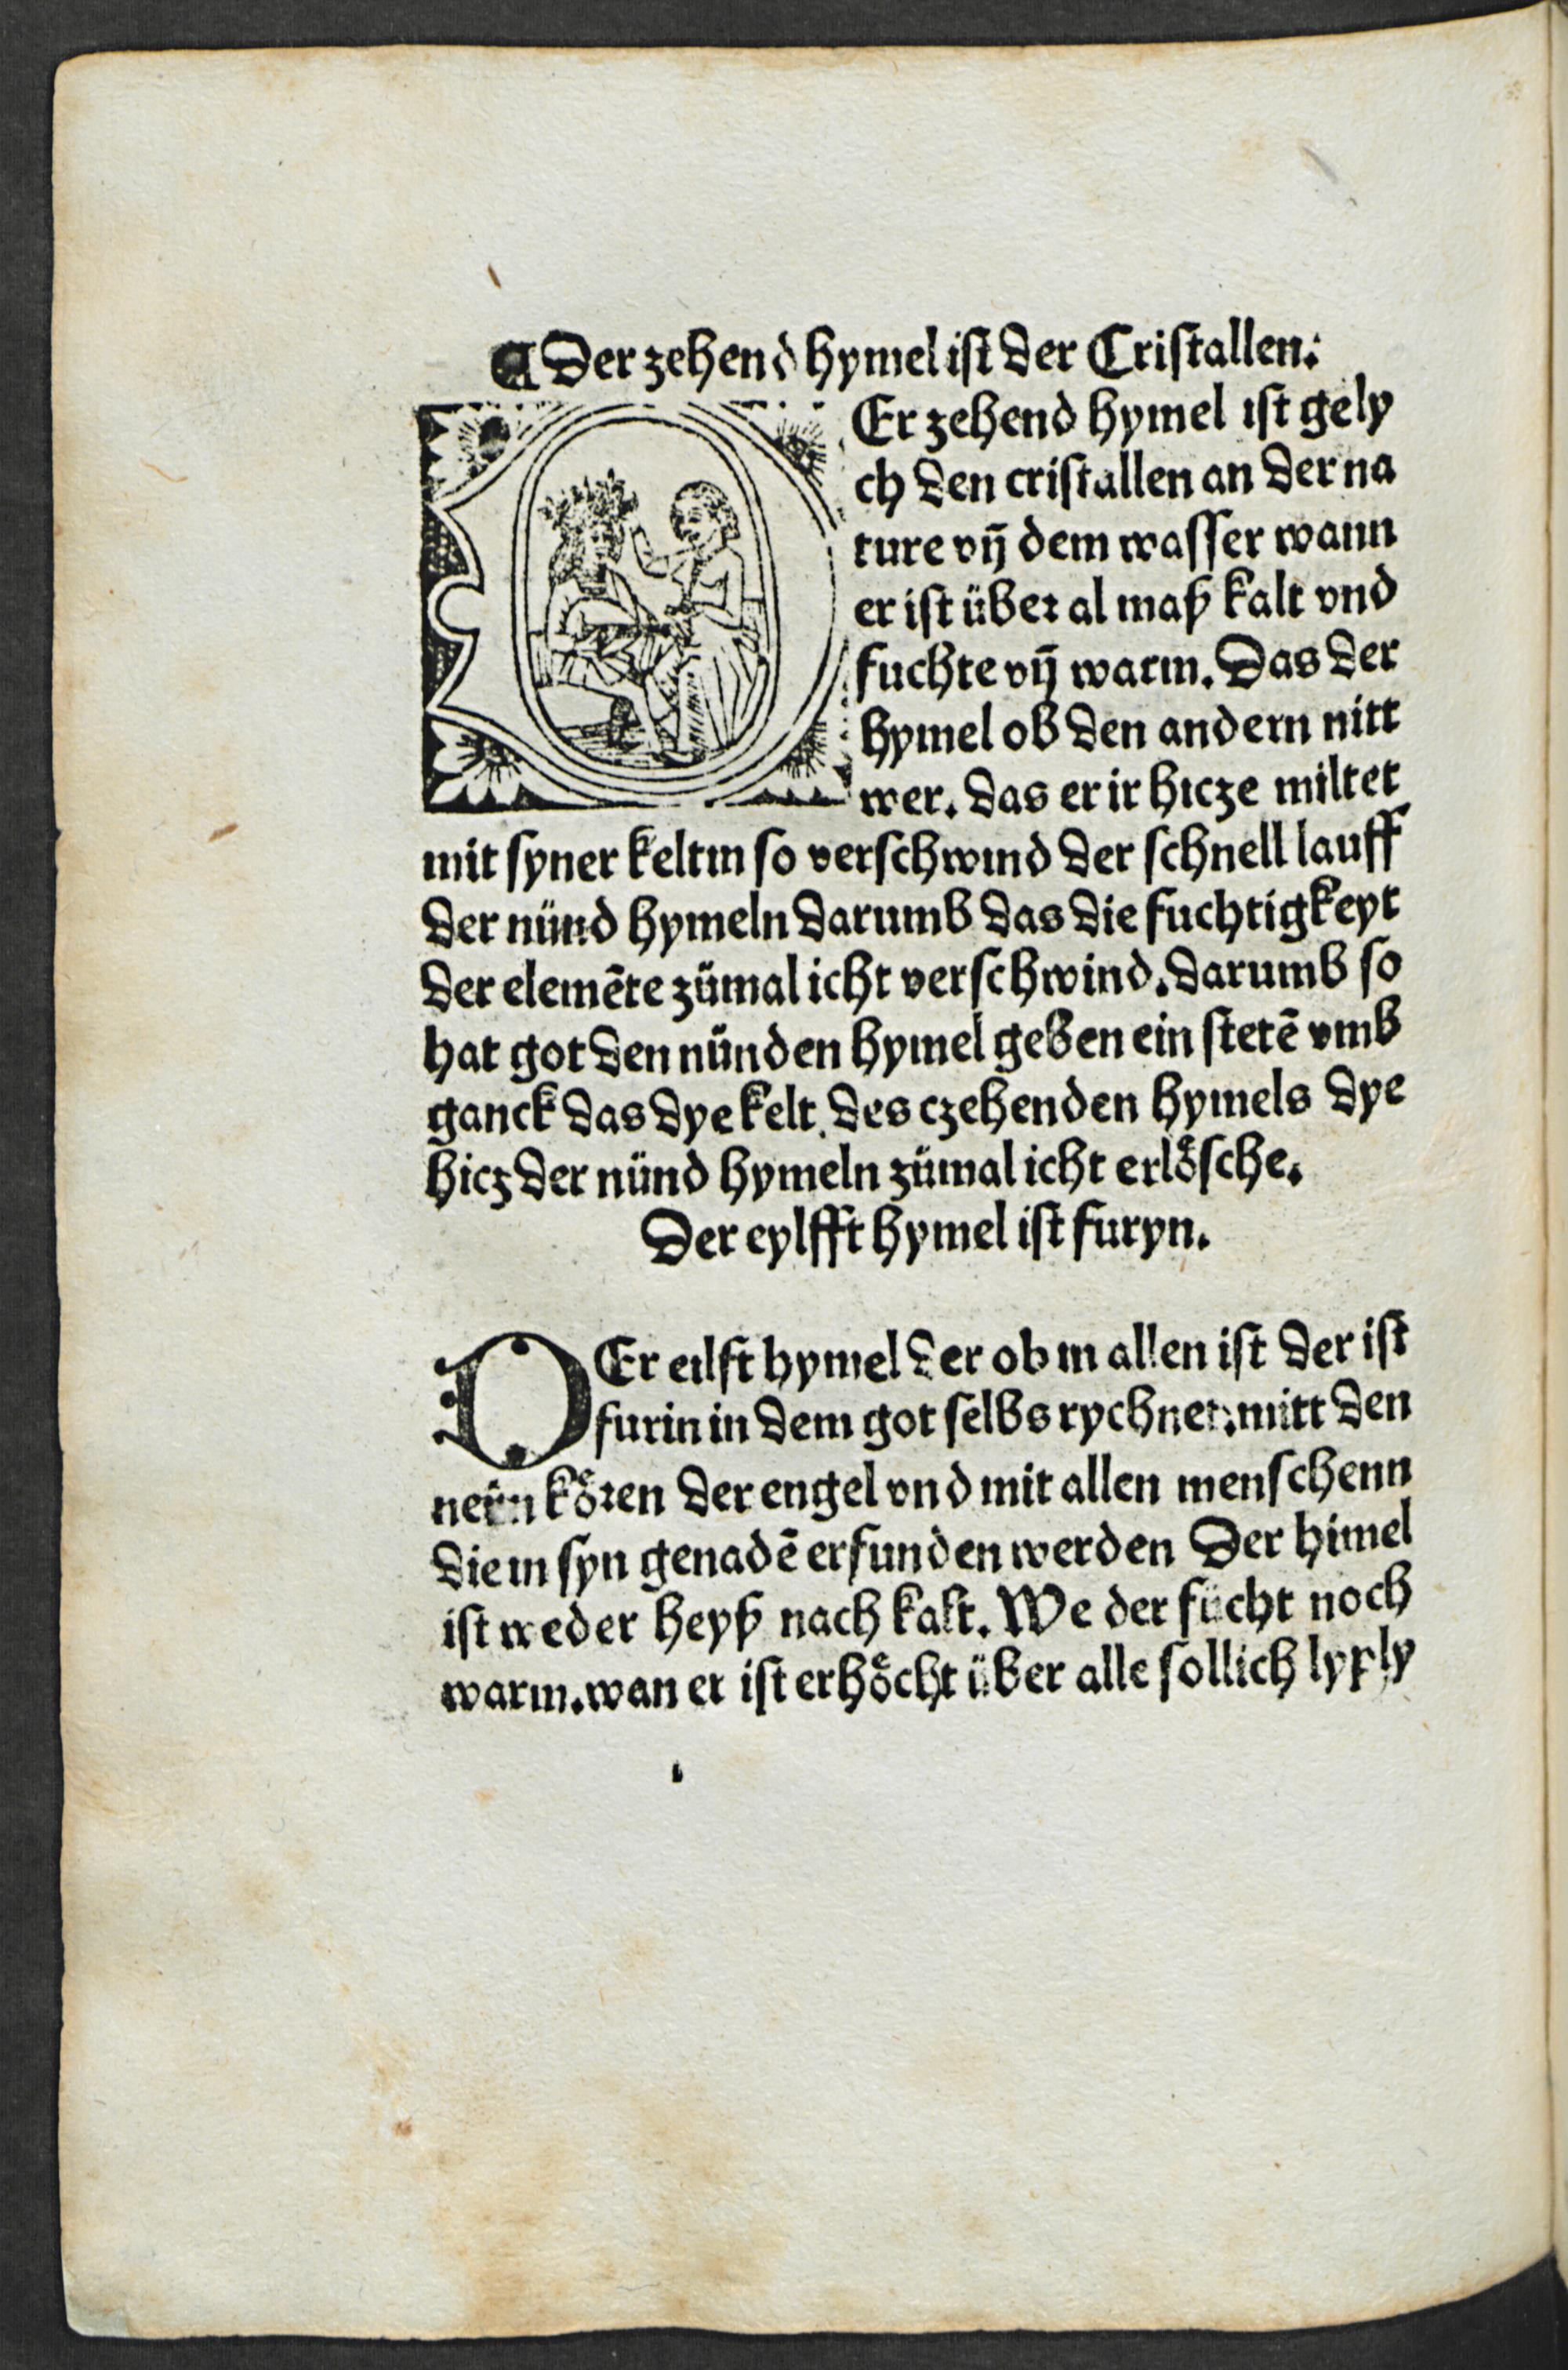 ¶ Der zehend hymel ist der Cristallen.
DEr zehend hymel ist gely
ch den cristallen an der na
ture vñ dem wasser wann
er ist über al maß kalt vnd
fuchte vñ warm. Das der
hymel ob den andern nitt
wer. das er ir hicze miltet
mit syner keltin so verschwind der schnell lauff
der nünd hymeln darumb das die fuchtigkeyt
der elemēte zümal icht verschwind. darumb so
hat got den nünden hymel geben ein stetē vmb
ganck das dye kelt des czehenden hymels dye
hicz der nünd hymeln zümal icht erloͤsche.
Der eylfft hymel ist furyn.
DEr eilft hymel der ob in allen ist der ist
furin in dem got selbs rychnet. mitt den
neün koͤren der engel vnd mit allen menschenn
die in syn genadē erfunden werden Der himel
ist weder heyß nach kalt. We der fücht noch
warm. wan er ist erhoͤcht über alle sollich lyply